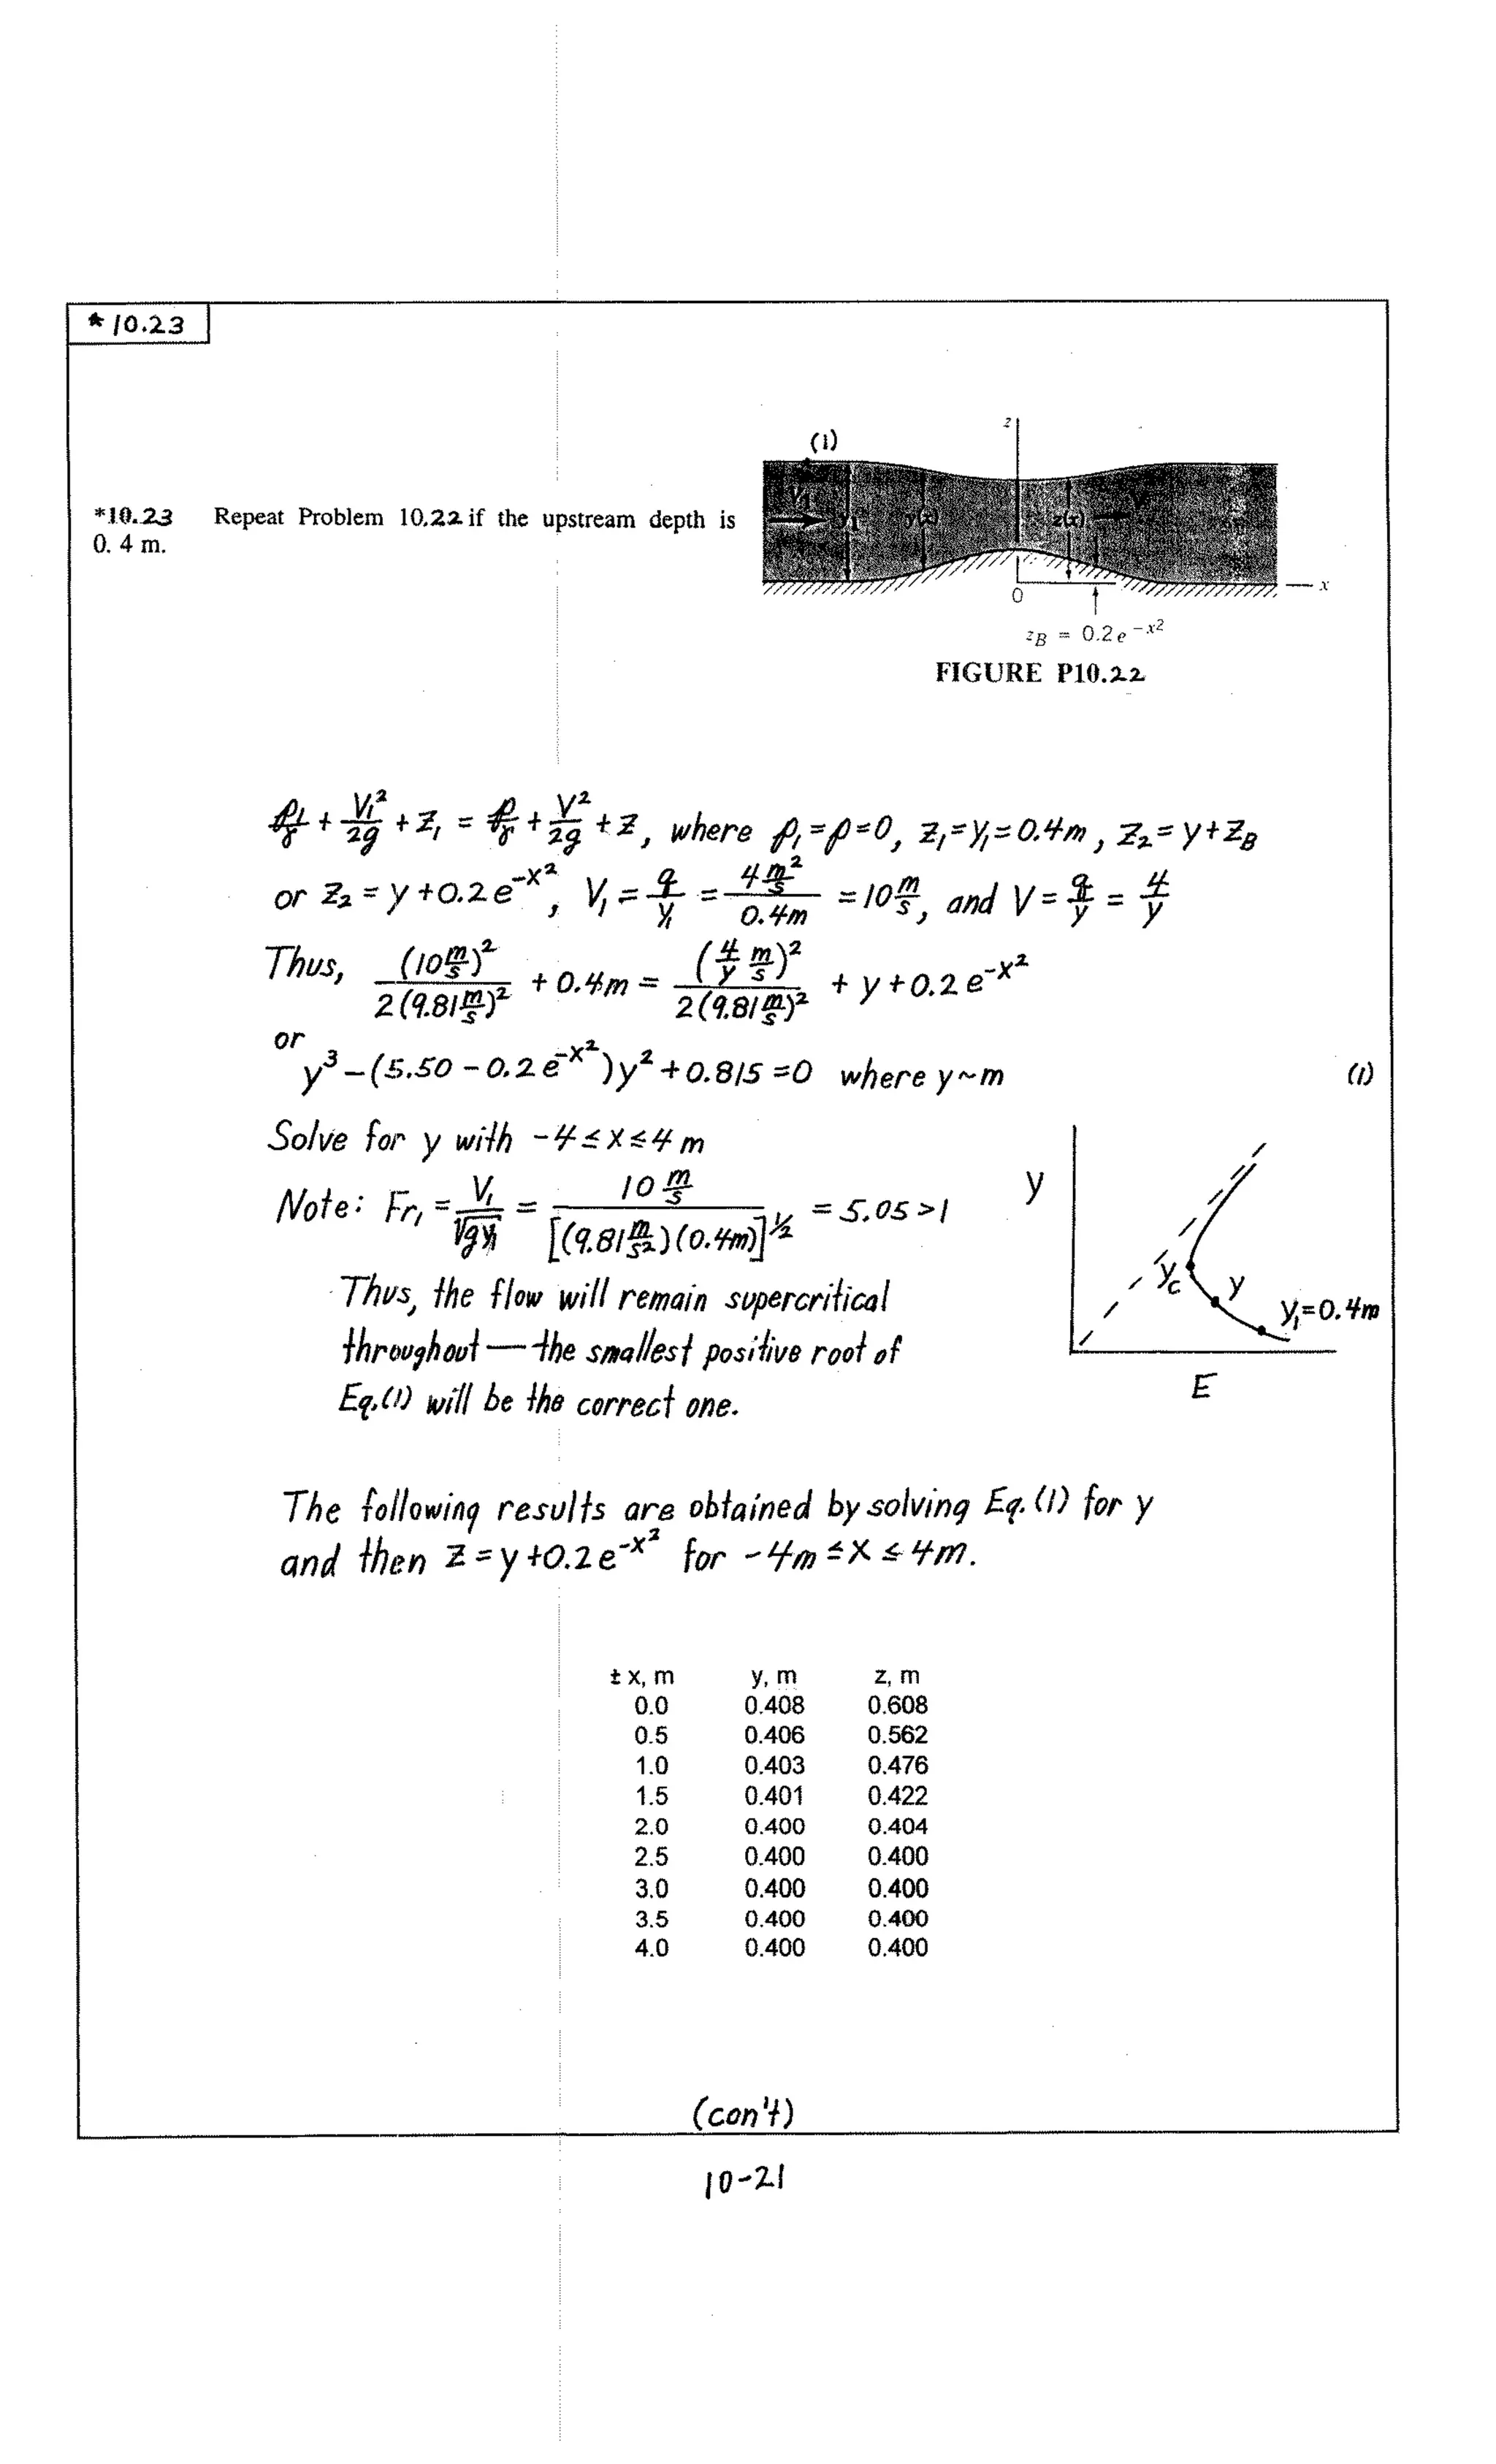 *10.23
*10.23 Repeat Problem 10.22 if the upstream depth is
0. 4 m.
(1)
z
V₁
y₁
y(x)
z(x)
V
0
x
z_B = 0.2 e^{-x²}
FIGURE P10.22
p₁/γ + V₁²/2g + z₁ = p/γ + V²/2g + z, where p₁=p=0, z₁=y₁=0.4m, z₂=y+z_B
or z₂ = y+0.2e^{-x²}, V₁ = q/y₁ = (4 m²/s)/(0.4m) = 10 m/s, and V = q/y = 4/y
Thus, (10 m/s)²/2(9.81 m/s)² + 0.4m = (4/y m/s)²/2(9.81 m/s)² + y + 0.2e^{-x²}
or
y³-(5.50-0.2e^{-x²})y²+0.815=0 where y~m (1)
Solve for y with -4≤x≤4 m
Note: Fr₁ = V₁/√(gy₁) = (10 m/s)/[(9.81 m/s²)(0.4m)]^{1/2} = 5.05 >1
Thus, the flow will remain supercritical
throughout — the smallest positive root of
Eq.(1) will be the correct one.
y
y_c
y
y₁=0.4m
E
The following results are obtained by solving Eq. (1) for y
and then z=y+0.2e^{-x²} for -4m≤x≤4m.
± x, m y, m z, m
0.0 0.408 0.608
0.5 0.406 0.562
1.0 0.403 0.476
1.5 0.401 0.422
2.0 0.400 0.404
2.5 0.400 0.400
3.0 0.400 0.400
3.5 0.400 0.400
4.0 0.400 0.400
(con't)
10-21